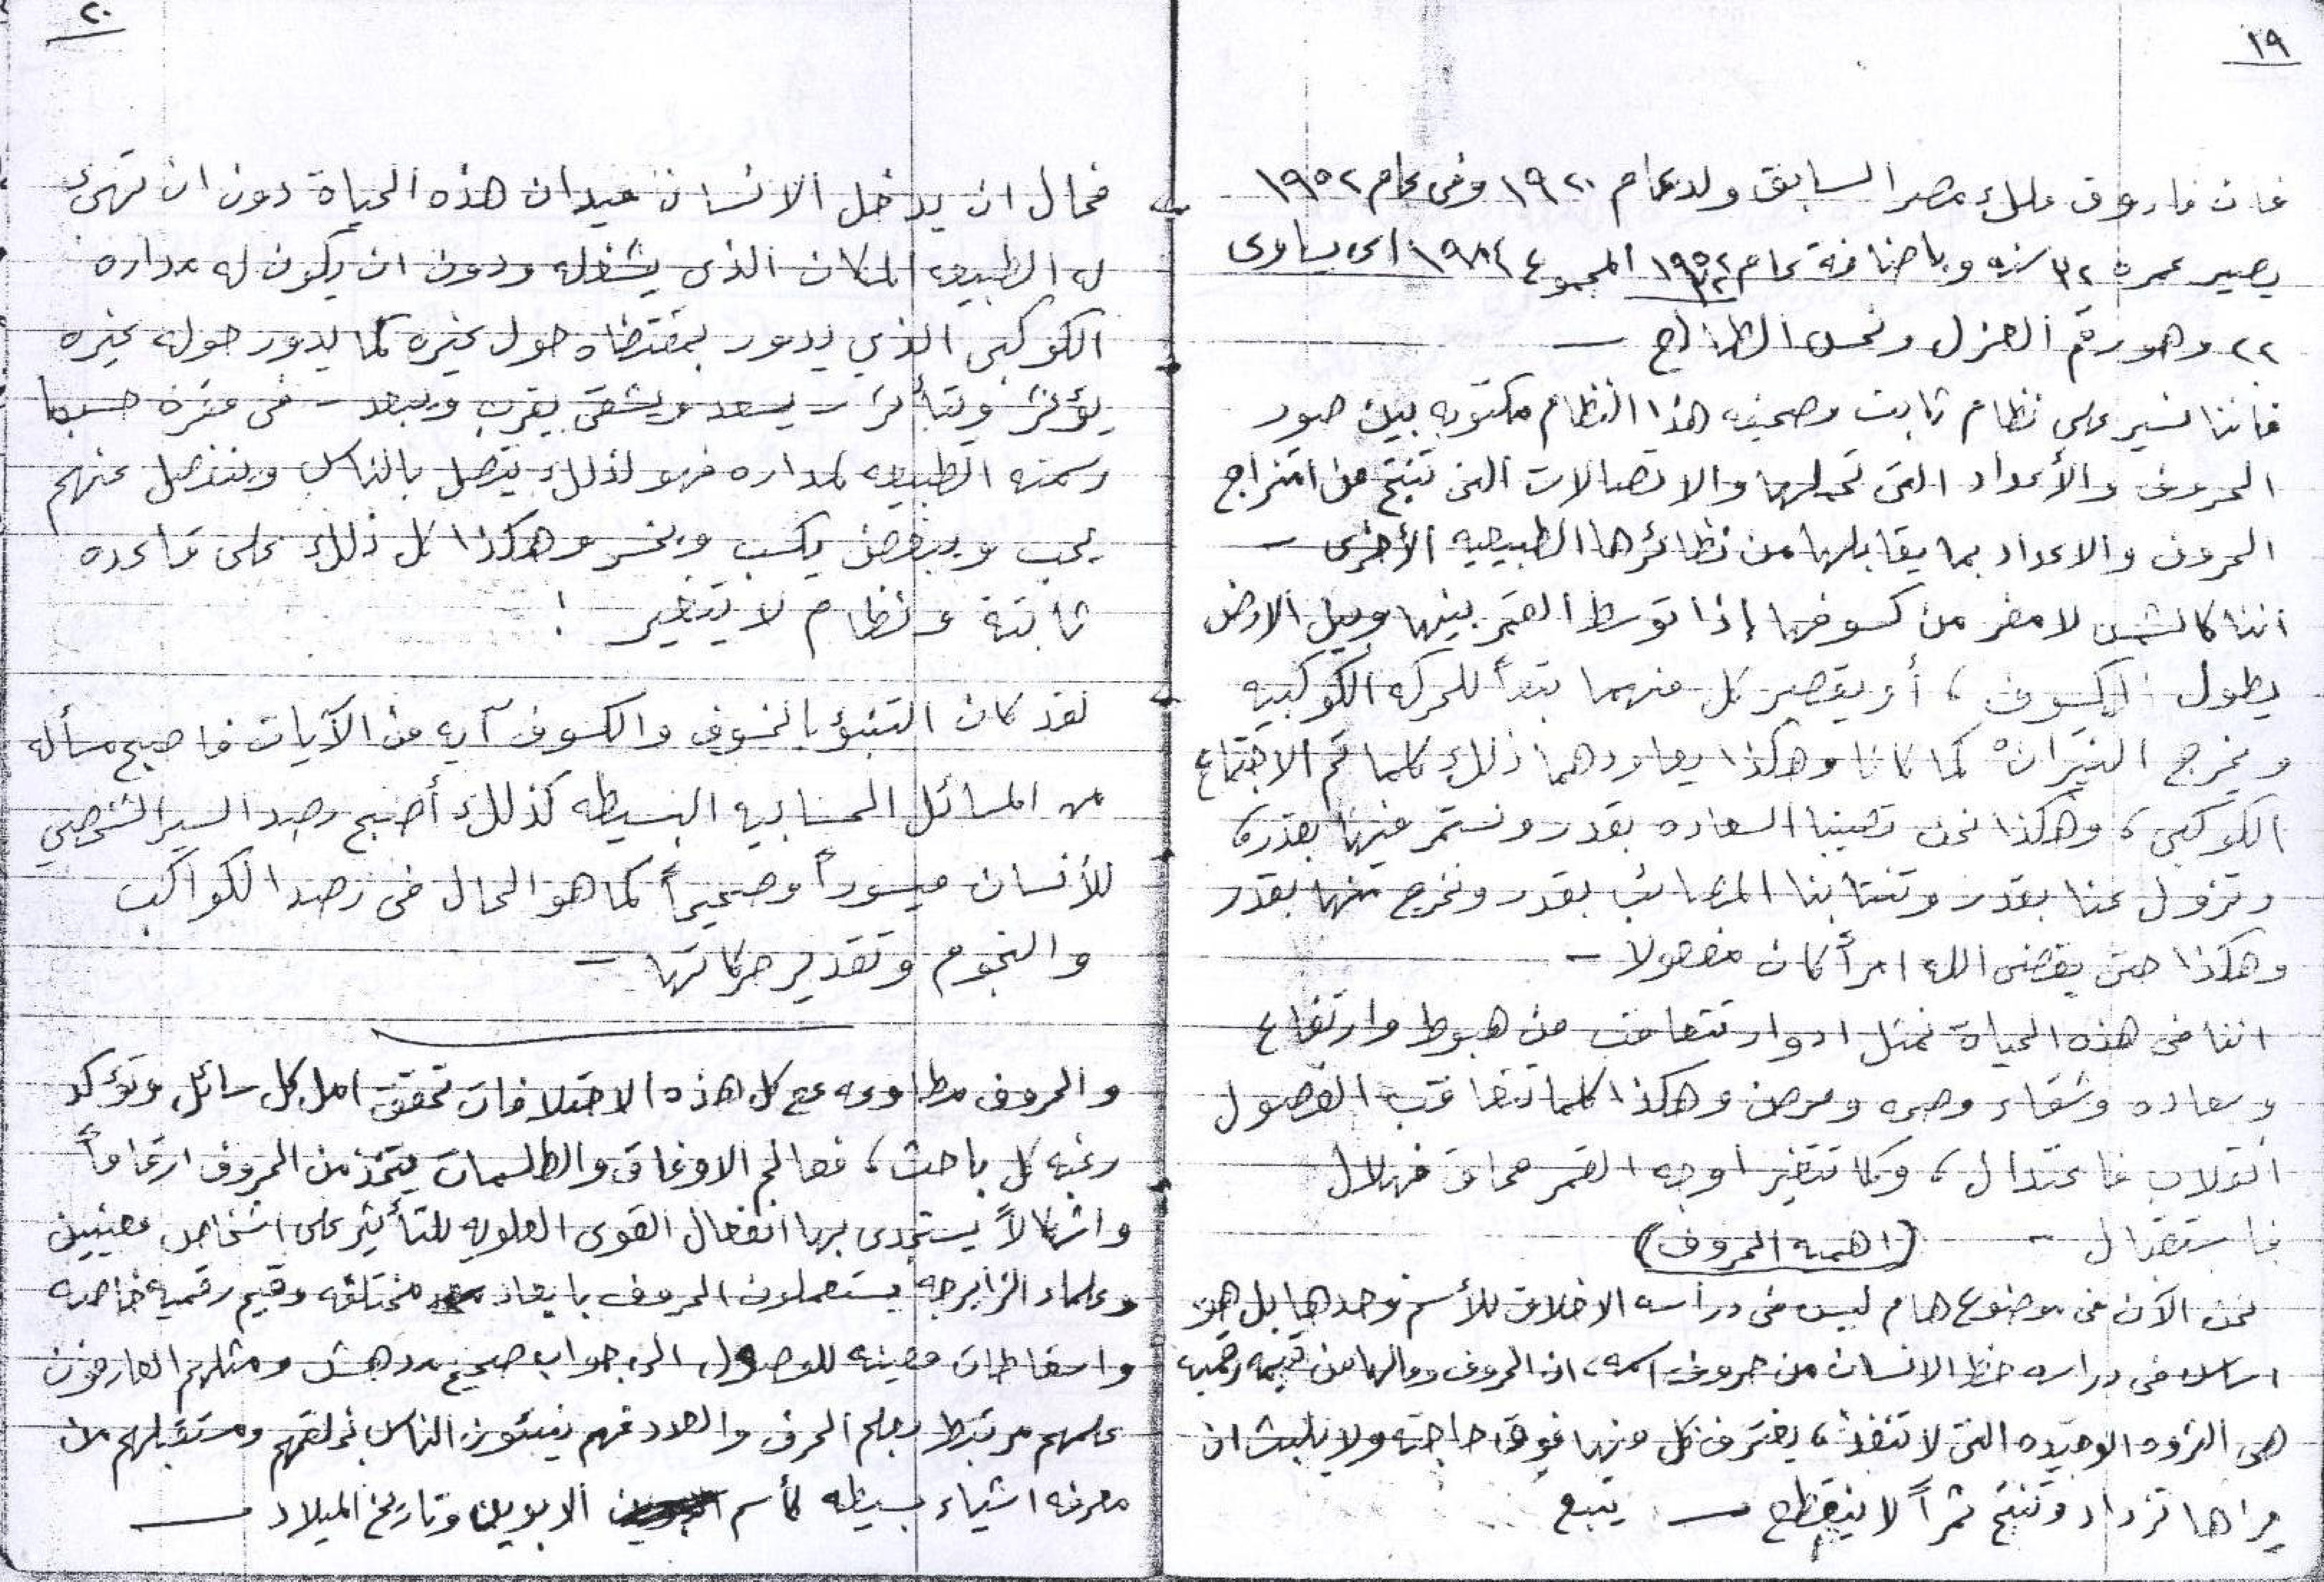 ١٩
فان فاروق ملك مصر السابق ولد عام ١٩٢٠ وفى عام ١٩٥٢
يصير عمره ٣٢ سنه وباضافة عام ١٩٥٢ المجموع ١٩٨٤ اى يساوى
٢٢ وهو رقم العزل ونحس الطالع –
فاننا نسير على نظام ثابت وصحيفه هذا النظام مكتوبه بين صور
الحروف والأعداد التى تحملها والاتصالات التى تنتج من امتزاج
الحروف والاعداد بما يقابلها من نظائرها الطبيعيه الأخرى –
اننا كالشمس لا مفر من كسوفها إذا توسط القمر بينها وبين الارض
يطول الكسوف ، أو يقصر كل منهما تبعاً للحركه الكوكبيه
ويخرج النيران كما كانا وهكذا يعاودهما ذلك كلما تم الاجتماع
الكوكبى ، وهكذا نحن تصيبنا السعاده بقدر ونستمر فيها بقدره
وتزول عنا بقدر وتنتابنا المصائب بقدر ونخرج منها بقدر
وهكذا حتى يقضى الله امراً كان مفعولا –
اننا فى هذه الحياة نمثل ادوار تتعاقب من هبوط وارتفاع
وسعاده وشقاء وصحه ومرض وهكذا كلما تتعاقب الفصول
انقلاب فاعتدال ، وكما تتغير اوجه القمر محاق فهلال
فاستقبال –
(اهمية الحروف)
نحن الآن فى موضوع هام ليس فى دراسه الاخلاق للأسم وحدها بل هو
اساسا فى دراسه حظ الانسان من حروف اسمه ، ان الحروف ومالها من قيمه رقميه
هى الثروه الوحيده التى لا تنفذ ، يغترف كل منها فوق حاجته ولا يلبث ان
يراها تزداد وتنتج ثمراً لا ينقطع — يتبع
٢٠
فمحال ان يدخل الانسان ميدان هذه الحياة دون ان تهئ
له الطبيعه المكان الذى يشغله ودون ان يكون له مداره
الكوكبى الذي يدور بمقتضاه حول غيره كما يدور حوله غيره
يؤثر ويتأثر – يسعد ويشقى يقرب ويبعد – فى فتره حسبما
رسمته الطبيعه لمداره فهو لذلك يتصل بالناس وينفصل عنهم
يحب ويبغض يكسب ويخسر وهكذا كل ذلك على قاعده
ثابتة ونظام لا يتغير !
لقد كان التنبؤ بالخسوف والكسوف آيه من الآيات فاصبح مسأله
من المسائل الحسابيه البسيطه كذلك أصبح رصد السير الشخصي
للأنسان ميسوراً وصحيحاً كما هو الحال فى رصد الكواكب
والنجوم وتقدير حركاتها –
والحروف مطاوعه مع كل هذه الاختلافات تحقق امل كل سائل وتؤكد
رغبه كل باحث ، فعالم الاوفاق والطلسمات يتخذ من الحروف ارقاماً
واشكالاً يستجدى بها انفعال القوى العلويه للتأثير على اشخاص معينين
وعلماء الزايرجه يستعملون الحروف بابعاد مختلفه وقيم رقميه خاصه
واسقاطات معينه للوصول الى جواب صحيح مدهش ومثلهم العارفون
علمهم مرتبط بعلم الحرف والعدد فهم ينبئون الناس بخلقهم ومستقبلهم من
معرفه اشياء بسيطه كأسم الابوين وتاريخ الميلاد —